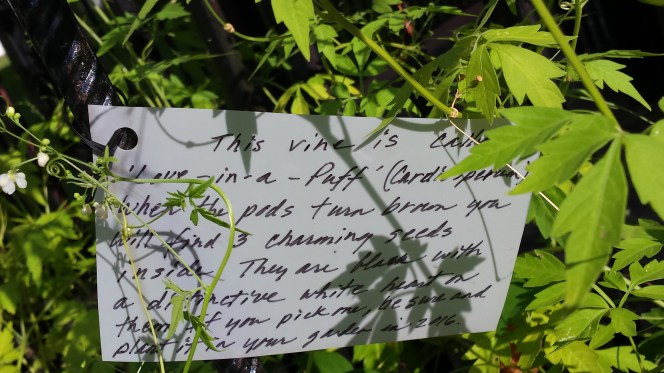 This vine is
'Love-in-a-Puff'
When the pods turn brown you
will find 3 charming seeds
inside. They are black with
a distinctive white heart on
them. If you pick one, be sure and
plant it in your garden in 2016.